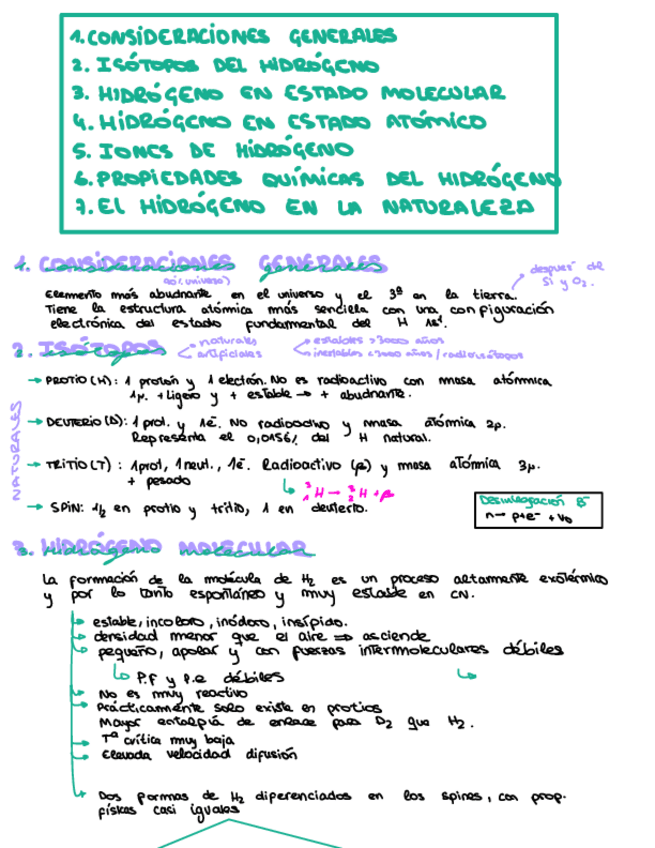 1. CONSIDERACIONES GENERALES
2. ISÓTOPOS DEL HIDRÓGENO
3. HIDRÓGENO EN ESTADO MOLECULAR
4. HIDRÓGENO EN ESTADO ATÓMICO
5. IONES DE HIDRÓGENO
6. PROPIEDADES QUÍMICAS DEL HIDRÓGENO
7. EL HIDRÓGENO EN LA NATURALEZA
1. CONSIDERACIONES GENERALES
universo)
después del
Si y O₂.
Elemento más abudnante en el universo y el 3º en la tierra.
Tiene la estructura atómica más sencilla con una configuración
electrónica del estado fundamental del H 1s¹.
2. ISÓTOPOS
naturales
artificiales
estables >3000 años
inestables <3000 años / radioisótopos
NATURALES
→ PROTIO (H): 1 protón y 1 electrón. No es radioactivo con masa atómica
1μ. + ligero y + estable → + abudnante.
→ DEUTERIO (D): 1 prot. y 1e⁻. No radioactivo y masa atómica 2μ.
Representa el 0,0156% del H natural.
→ TRITIO (T): 1 prot, 1 neut., 1e⁻. Radioactivo (β) y masa atómica 3μ.
+ pesado
³₁H → ³₂H + β
→ SPIN: 1/2 en protio y tritio, 1 en deuterio.
Desintegración β⁻
n → p+e⁻ + ν₀
3. HIDRÓGENO MOLECULAR
La formación de la molécula de H₂ es un proceso altamente exotérmico
y por lo tanto espontáneo y muy estable en CN.
estable, incoloro, inodoro, insípido.
densidad menor que el aire ⇒ asciende
pequeño, apolar y con fuerzas intermoleculares débiles
P.f y p.e débiles
No es muy reactivo
Prácticamente solo existe en protios
Mayor entalpía de enlace para D₂ que H₂.
Tª crítica muy baja
Elevada velocidad difusión
Dos formas de H₂ diferenciados en los spines, con prop.
físicas casi iguales